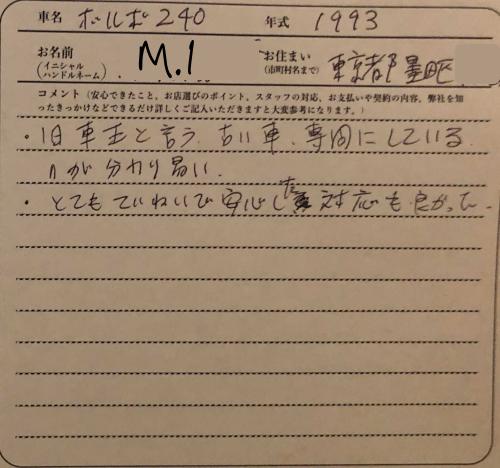 車名 ボルボ240 年式 1993
お名前 (イニシャル ハンドルネーム) M.I お住まい (市町村名まで) 東京都墨田区
コメント（安心できたこと。お店選びのポイント。スタッフの対応、お支払いや契約の内容。弊社を知
ったきっかけなどできるだけ詳しくご記入いただきますと大変参考になります。）
・旧車王と言う、古い車、専門にしている
のが分かり易い。
・とてもていねいで安心した 対応も良かった。